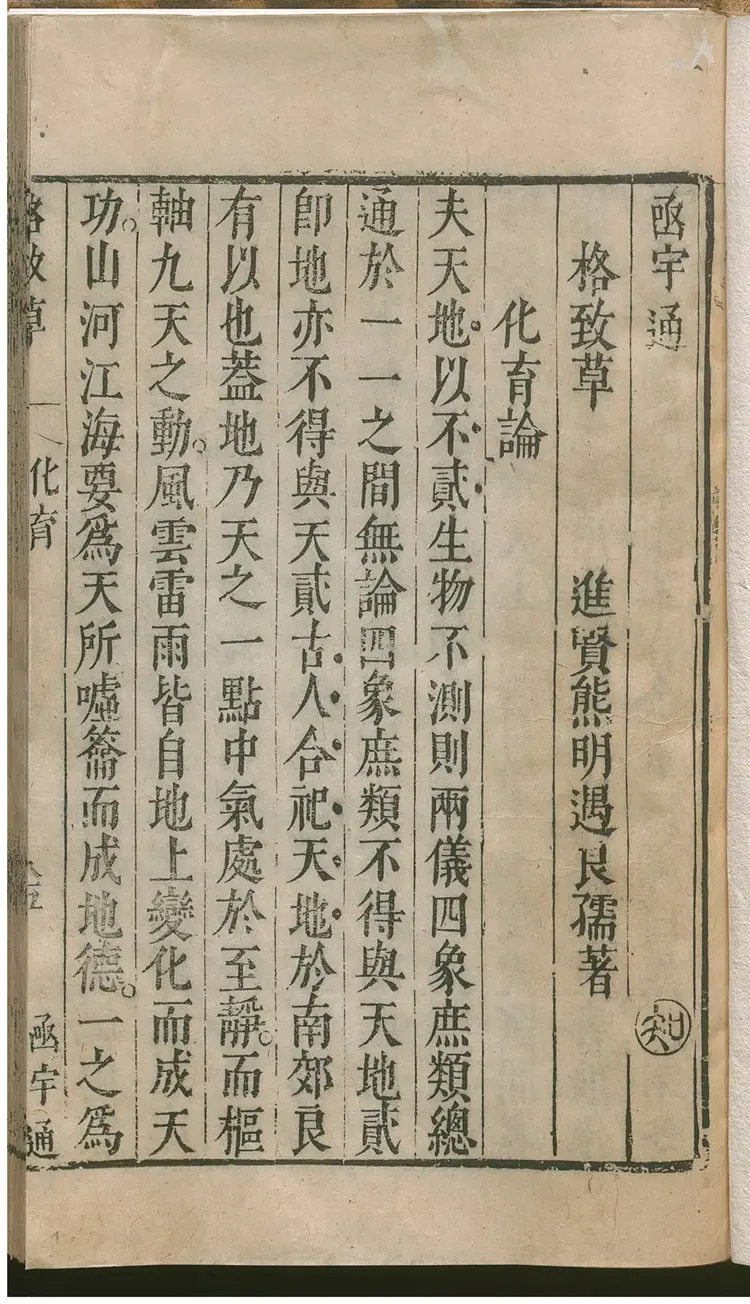 函宇通 ㊐
格致草 進賢熊明遇良孺著
化育論
夫天地以不貳生物不測則兩儀四象庶類總
通於一一之間無論四象庶類不得與天地貳
卽地亦不得與天貳古人合祀天地於南郊良
有以也蓋地乃天之一點中氣處於至靜。而樞
軸九天之動。風雲雷雨皆自地上變化而成天
功。山河江海要爲天所噓籥而成地德。一之爲
格致草 化育 函宇通